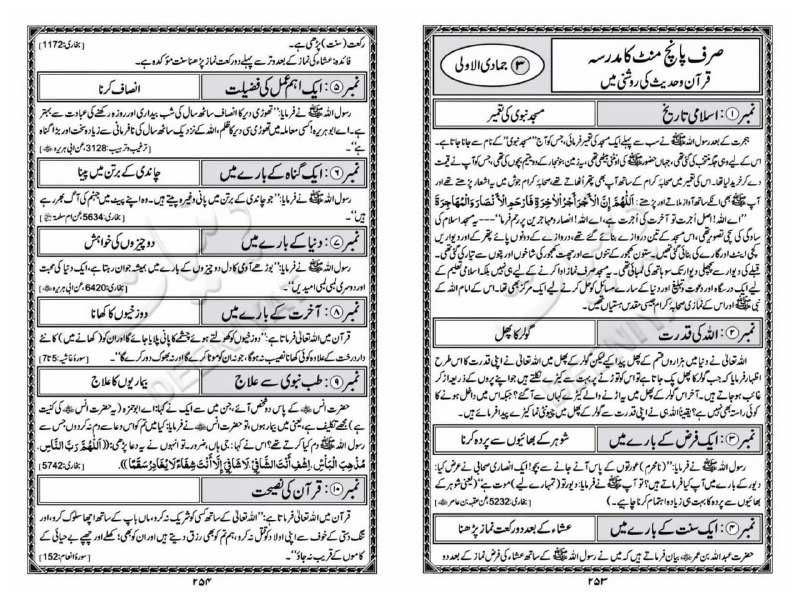 صرف پانچ منٹ کا مدرسہ
قرآن وحدیث کی روشنی میں
۳ جمادی الاولی
نمبر ۱: اسلامی تاریخ
مسجد نبوی کی تعمیر
ہجرت کے بعد رسول اللہ ﷺ نے سب سے پہلے ایک مسجد کی تعمیر فرمائی، جس کو آج "مسجد نبوی" کے نام سے جانا جاتا ہے۔
اس کے لیے وہی جگہ منتخب کی گئی تھی، جہاں حضور ﷺ کی اونٹنی بیٹھی تھی، یہ زمین بنو نجار کے دو یتیم بچوں کی تھی، جس کو آپ نے قیمت
دے کر خرید لیا تھا۔ اس کی تعمیر میں صحابۂ کرام کے ساتھ آپ بھی پتھر اٹھاتے تھے، صحابۂ کرام جوش میں یہ اشعار پڑھتے تھے اور
آپ ﷺ بھی ان کے ساتھ آواز ملاتے اور پڑھتے: اَللّٰهُمَّ إِنَّ الْأَجْرَ أَجْرُ الْآخِرَةِ فَارْحَمِ الْأَنْصَارَ وَالْمُهَاجِرَةَ
"اے اللہ! اصل اُجرت تو آخرت کی اُجرت ہے، اے اللہ! انصار و مہاجرین پر رحم فرما" --- یہ مسجد اسلام کی
سادگی کی سچی تصویر تھی، اس مسجد کے تین دروازے بنائے گئے تھے، دروازے کے دونوں پائے پتھر کے اور دیواریں
کچی اینٹ اور گارے کی بنائی گئی تھیں، ستون کھجور کے تنوں سے اور چھت کھجور کی شاخوں اور پتوں سے تیار کی گئی تھی۔
قبلے کی دیوار سے پچھلی دیوار تک سو ہاتھ کی لمبائی تھی۔ یہ مسجد صرف نماز ادا کرنے کے لیے ہی نہیں بلکہ اسلامی تعلیم کے
لیے ایک درسگاہ اور دعوت و تبلیغ اور دنیا کے سارے مسائل کو حل کرنے کے لیے ایک مرکز بھی تھا۔ اس کے امام اللہ کے
نبی ﷺ اور اس کے نمازی صحابۂ کرام جیسی مقدس ہستیاں تھیں۔
نمبر ۲: اللہ کی قدرت
گولر کا پھل
اللہ تعالیٰ نے دنیا میں ہزاروں قسم کے پھل پیدا کیے لیکن گولر کے پھل میں اللہ تعالیٰ نے اپنی قدرت کا اس طرح
اظہار فرمایا کہ جب گولر کا پھل پک جاتا ہے تو اس کو توڑنے پر بہت سے کیڑے نکلتے ہیں جو اپنے پروں کے ذریعہ اڑ کر
غائب ہو جاتے ہیں۔ آخر اس گولر کے پھل میں یہ اڑنے والے کیڑے کہاں سے آ گئے؟ جبکہ اس میں داخل ہونے کا
کوئی راستہ بھی نہیں ہے؟ یقیناً اللہ ہی نے اپنی قدرت سے گولر کے پھل میں چیونٹی نما کیڑے پیدا فرمائے ہیں۔
نمبر ۳: ایک فرض کے بارے میں
شوہر کے بھائیوں سے پردہ کرنا
رسول اللہ ﷺ نے فرمایا: "(نامحرم) عورتوں کے پاس آنے جانے سے بچو! ایک انصاری صحابی نے عرض کیا:
دیور کے بارے میں آپ کیا فرماتے ہیں؟ تو آپ ﷺ نے فرمایا: دیور تو (تمہارے لیے) موت ہے" (یعنی شوہر کے
بھائیوں سے پردہ کا بہت ہی زیادہ اہتمام کرنا چاہیے)۔ [بخاری: 5232، عن عقبہ بن عامر]
نمبر ۴: ایک سنت کے بارے میں
عشاء کے بعد دو رکعت نماز پڑھنا
حضرت عبداللہ بن عمر بیان فرماتے ہیں کہ میں نے رسول اللہ ﷺ کے ساتھ عشاء کی فرض نماز کے بعد دو
۲۵۳
رکعت (سنت) پڑھی ہے۔ [بخاری: 1172]
فائدہ: عشاء کی نماز کے بعد وتر سے پہلے دو رکعت نماز پڑھنا سنت مؤکدہ ہے۔
نمبر ۵: ایک اہم عمل کی فضیلت
انصاف کرنا
رسول اللہ ﷺ نے فرمایا: "تھوڑی دیر کا انصاف ساٹھ سال کی شب بیداری اور روزہ رکھنے کی عبادت سے بہتر
ہے۔ اے ابو ہریرہ! کسی معاملہ میں تھوڑی سی دیر کا ظلم، اللہ کے نزدیک ساٹھ سال کی نافرمانی سے زیادہ سخت اور بڑا گناہ
ہے"۔ [ترغیب و ترہیب: 3128، عن ابی ہریرہ]
نمبر ۶: ایک گناہ کے بارے میں
چاندی کے برتن میں پینا
رسول اللہ ﷺ نے فرمایا: "جو چاندی کے برتن میں پانی وغیرہ پیتے ہیں۔ وہ اپنے پیٹ میں جہنم کی آگ بھر رہے
ہیں"۔ [بخاری: 5634، عن ام سلمہ]
نمبر ۷: دنیا کے بارے میں
دو چیزوں کی خواہش
رسول اللہ ﷺ نے فرمایا: "بوڑھے آدمی کا دل دو چیزوں کے بارے میں ہمیشہ جوان رہتا ہے، ایک دنیا کی محبت
اور دوسری لمبی لمبی امیدیں"۔ [بخاری: 6420، عن ابی ہریرہ]
نمبر ۸: آخرت کے بارے میں
دوزخیوں کا کھانا
قرآن میں اللہ تعالیٰ فرماتا ہے: "دوزخیوں کو کھولتے ہوئے چشمے کا پانی پلایا جائے گا اور ان کو (کھانے میں) کانٹے
دار درخت کے علاوہ کوئی کھانا نصیب نہ ہوگا، جو نہ ان کو موٹا کرے گا اور نہ بھوک دور کرے گا"۔ [سورۂ غاشیہ: 5 تا 7]
نمبر ۹: طب نبوی سے علاج
بیماریوں کا علاج
حضرت انس کے پاس دو شخص آئے، جن میں سے ایک نے کہا: اے ابو حمزہ (یہ حضرت انس کی کنیت
ہے) مجھے تکلیف ہے، یعنی میں بیمار ہوں، تو حضرت انس نے فرمایا: کیا میں تم کو اس دعا سے دم نہ کردوں جس سے
رسول اللہ ﷺ دم کیا کرتے تھے؟ اس نے کہا: جی ہاں، ضرور، تو انہوں نے یہ دعا پڑھی: ((اَللّٰهُمَّ رَبَّ النَّاسِ،
مُذْهِبَ الْبَأْسِ، اِشْفِ أَنْتَ الشَّافِيْ، لَا شَافِيَ إِلَّا أَنْتَ شِفَاءً لَا يُغَادِرُ سَقَمًا))۔ [بخاری: 5742]
نمبر ۱۰: قرآن کی نصیحت
قرآن میں اللہ تعالیٰ فرماتا ہے: "اللہ تعالیٰ کے ساتھ کسی کو شریک نہ کرو، ماں باپ کے ساتھ اچھا سلوک کرو، اور
تنگ دستی کے خوف سے اپنی اولاد کو قتل نہ کرو، ہم تم کو بھی رزق دیتے ہیں اور ان کو بھی؛ کھلے اور چھپے بے حیائی کے
کاموں کے قریب نہ جاؤ"۔ [سورۂ انعام: 152]
۲۵۴